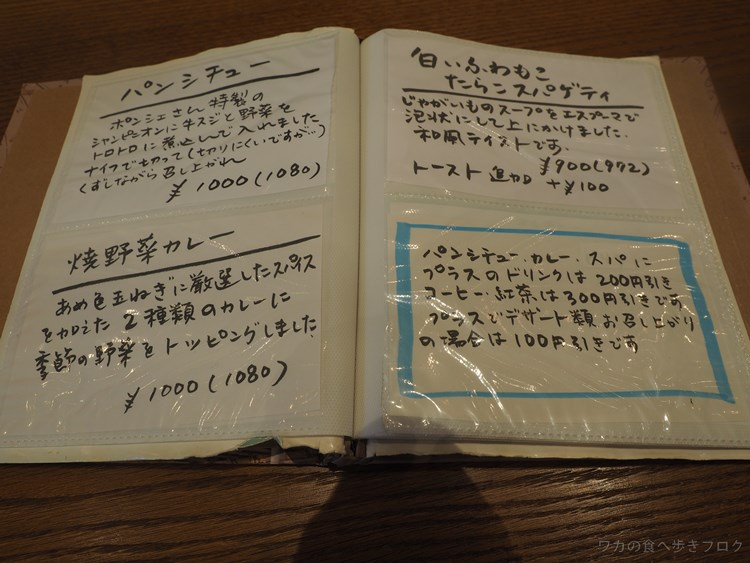 パンシチュー
ポンシェさん特製の
シャンピニオンに牛スジと野菜を
トロトロに煮込んで入れました
ナイフで切って(切りにくいですが…)
くずしながら召し上がれ
¥1000(1080)
焼野菜カレー
あめ色玉ねぎに厳選したスパイス
を加えた2種類のカレーに
季節の野菜をトッピングしました
¥1000(1080)
白いふわもこ
たらこスパゲティ
じゃがいものスープをエスプーマで
泡状にして上にかけました。
和風テイストです。
¥900(972)
トースト追加 +¥100
パンシチュー、カレー、スパに
プラスのドリンクは200円引き
コーヒー・紅茶は300円引きです
プラスでデザート類お召し上がり
の場合は100円引きです
ワカの食べ歩きブログ